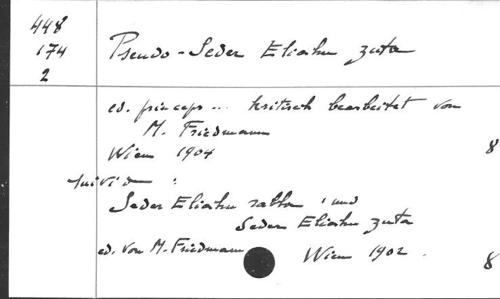 448
174
2
Pseudo-Seder Eliahu zuta
ed. princeps ... kritisch bearbeitet von
M. Friedmann
Wien 1904 8
suivi de :
Seder Eliahu rabba und
Seder Eliahu zuta
ed. von M. Friedmann Wien 1902. 8